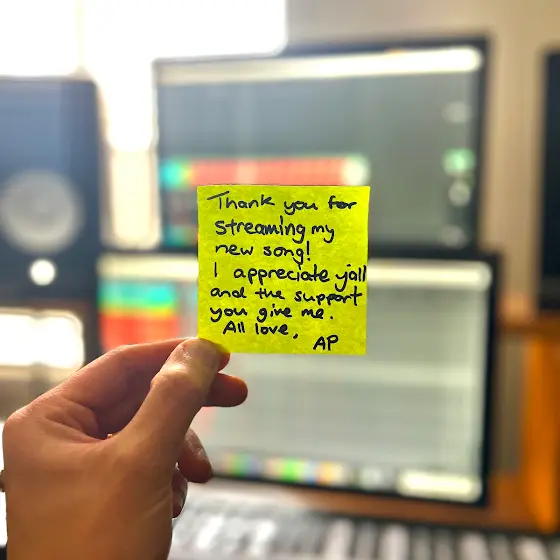 Thank you for
streaming my
new song!
I appreciate y'all
and the support
you give me.
All love,
AP